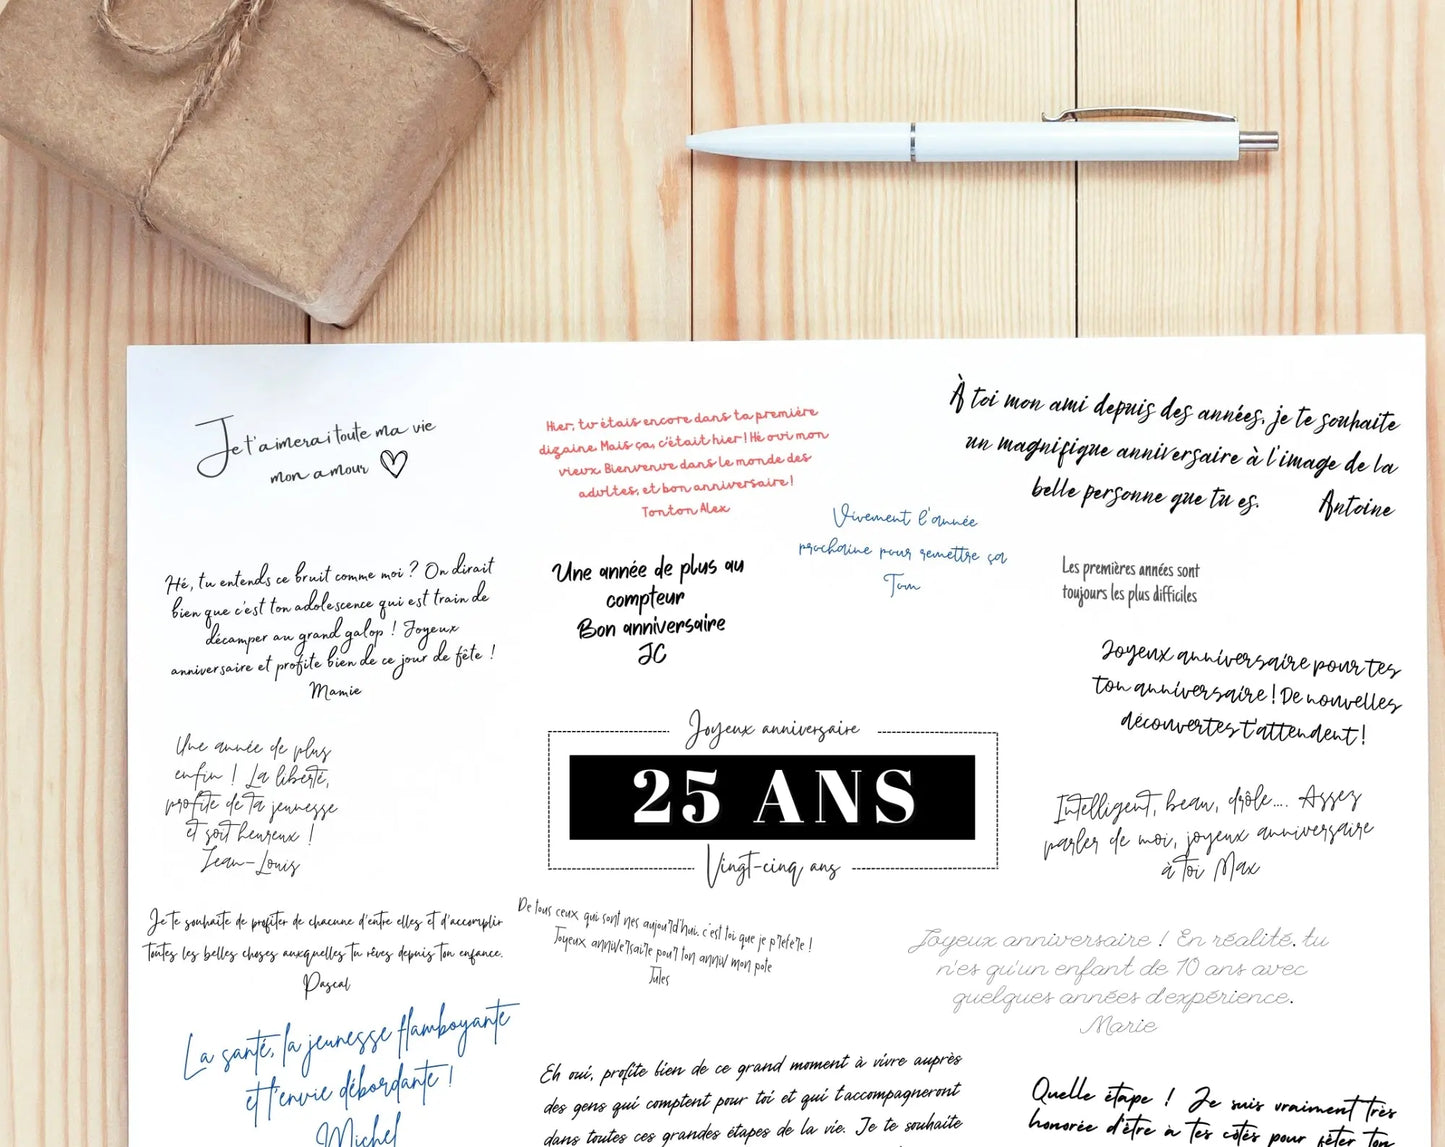 Je t'aimerai toute ma vie
mon amour
Hier, tu étais encore dans ta première
dizaine. Mais ça, c'était hier ! Hé oui mon
vieux. Bienvenue dans le monde des
adultes, et bon anniversaire !
Tonton Alex
À toi mon ami depuis des années, je te souhaite
un magnifique anniversaire à l'image de la
belle personne que tu es. Antoine
Vivement l'année
prochaine pour remettre ça
Tom
Hé, tu entends ce bruit comme moi ? On dirait
bien que c'est ton adolescence qui est train de
décamper au grand galop ! Joyeux
anniversaire et profite bien de ce jour de fête !
Mamie
Une année de plus au
compteur
Bon anniversaire
JC
Les premières années sont
toujours les plus difficiles
Joyeux anniversaire pour tes
ton anniversaire ! De nouvelles
découvertes t'attendent !
Une année de plus
enfin ! La liberté,
profite de ta jeunesse
et soit heureux !
Jean-Louis
Joyeux anniversaire
25 ANS
Vingt-cinq ans
Intelligent, beau, drôle.... Assez
parler de moi, joyeux anniversaire
à toi Max
Je te souhaite de profiter de chacune d'entre elles et d'accomplir
toutes les belles choses auxquelles tu rêves depuis ton enfance.
Pascal
De tous ceux qui sont nés aujourd'hui, c'est toi que je préfère !
Joyeux anniversaire pour ton anniv mon pote
Jules
Joyeux anniversaire ! En réalité, tu
n'es qu'un enfant de 10 ans avec
quelques années d'expérience.
Marie
La santé, la jeunesse flamboyante
et l'envie débordante !
Michel
Eh oui, profite bien de ce grand moment à vivre auprès
des gens qui comptent pour toi et qui t'accompagneront
dans toutes ces grandes étapes de la vie. Je te souhaite
Quelle étape ! Je suis vraiment très
honorée d'être à tes côtés pour fêter ton